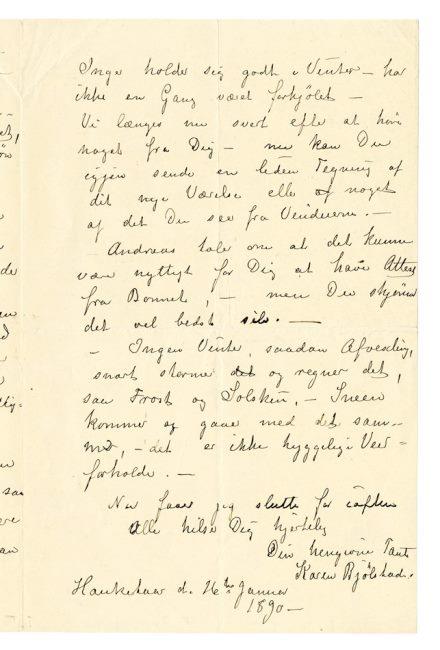 Inger holder sig godt i Vinter – har
ikke en Gang været forkjölet –
Vi længes nu svert efter at höre
noget fra Dig – nu kan Du
igjen sende en liden Tegning af
dit nye Værelse elle og noget
af det Du see fra Vinduerne. –
Andreas tale om at det kunne
være nyttigt for Dig at have Attest
fra Bonnet, – men Du skjönner
det vel bedst selv. –
– Ingen Vinter, saadan Afvexling,
snart stormer det og regner det,
saa Frost og Solskin, – Sneen
kommer og gaaer med det sam-
me, – det er ikke hyggelige Veir-
forholde. –
Nu faaer jeg slutte for iaften
Alle hilse Dig hjertelig
Din hengivne Tante
Karen Bjölstad.
Haukehaar d. Januar
1890 –